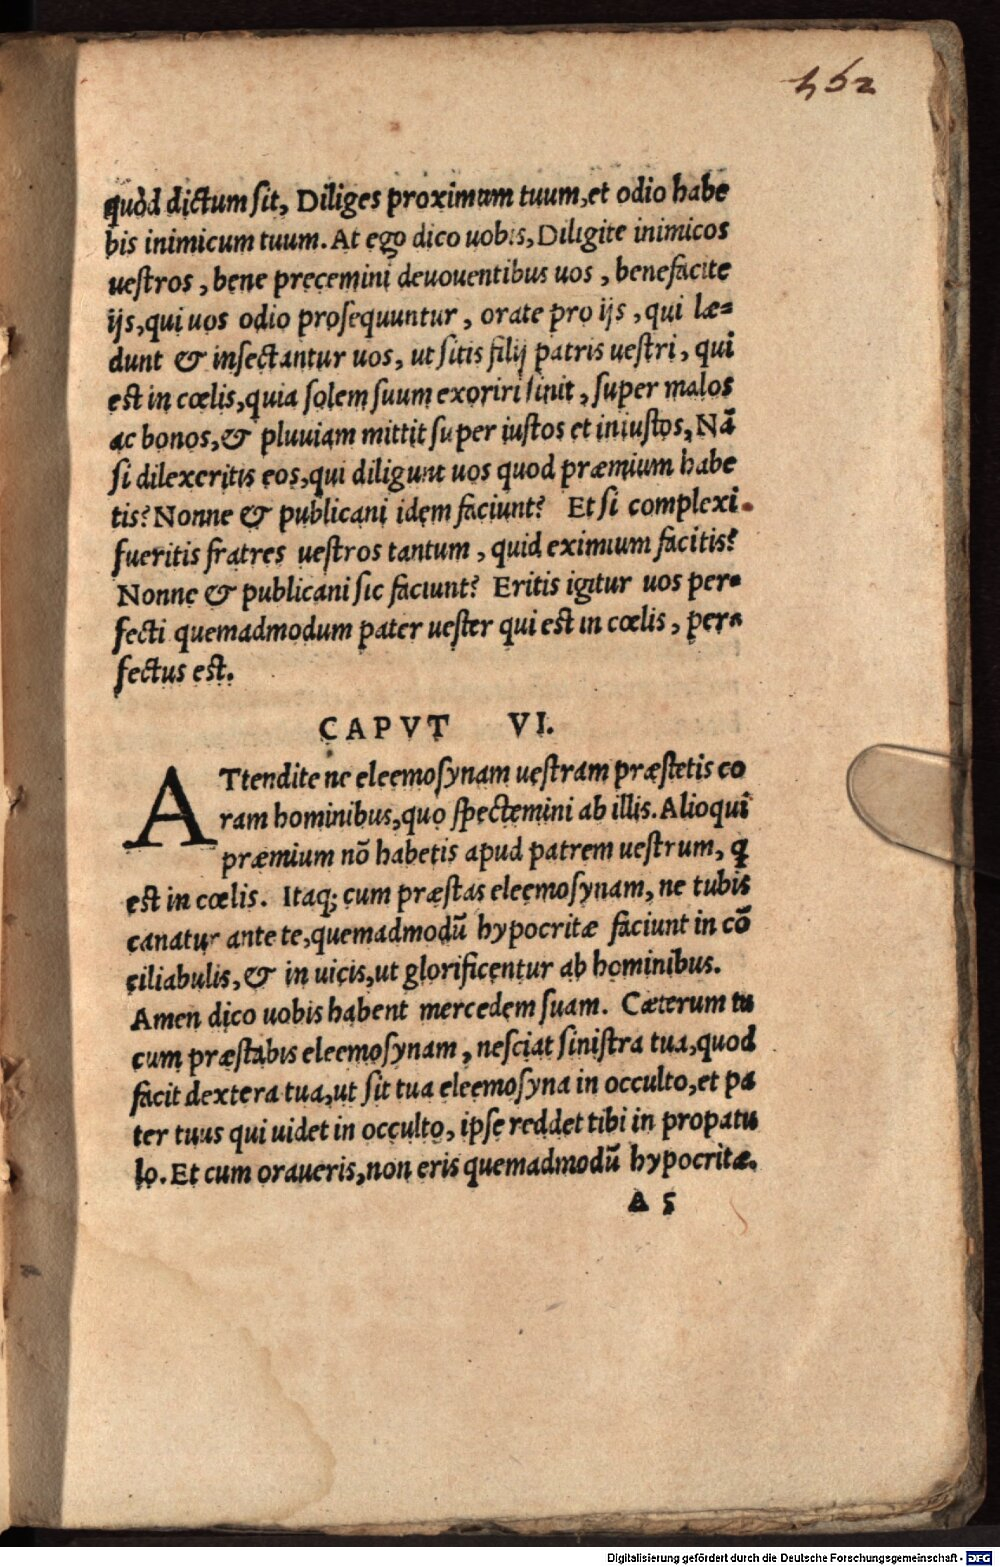 462
quòd dictum sit, Diliges proximum tuum, et odio habe
bis inimicum tuum. At ego dico uobis, Diligite inimicos
uestros, bene precemini deuouentibus uos, benefacite
ijs, qui uos odio prosequuntur, orate pro ijs, qui læ=
dunt & insectantur uos, ut sitis filij patris uestri, qui
est in cœlis, quia solem suum exoriri sinit, super malos
ac bonos, & pluuiam mittit super iustos et iniustos, Nã
si dilexeritis eos, qui diligunt uos quod præmium habe
tis? Nonne & publicani idem faciunt? Et si complexi
fueritis fratres uestros tantum, quid eximium facitis?
Nonne & publicani sic faciunt? Eritis igitur uos per=
fecti quemadmodum pater uester qui est in cœlis, per=
fectus est.
CAPVT VI.
ATtendite ne eleemosynam uestram præstetis co
ram hominibus, quo spectemini ab illis. Alioqui
præmium nõ habetis apud patrem uestrum, q̃
est in cœlis. Itaq; cum præstas eleemosynam, ne tubis
canatur ante te, quemadmodũ hypocritæ faciunt in cõ
ciliabulis, & in uicis, ut glorificentur ab hominibus.
Amen dico uobis habent mercedem suam. Cæterum tu
cum præstabis eleemosynam, nesciat sinistra tua, quod
facit dextera tua, ut sit tua eleemosyna in occulto, et pa
ter tuus qui uidet in occulto, ipse reddet tibi in propatu
lo. Et cum oraueris, non eris quemadmodũ hypocritæ.
A 5
Digitalisierung gefördert durch die Deutsche Forschungsgemeinschaft - DFG